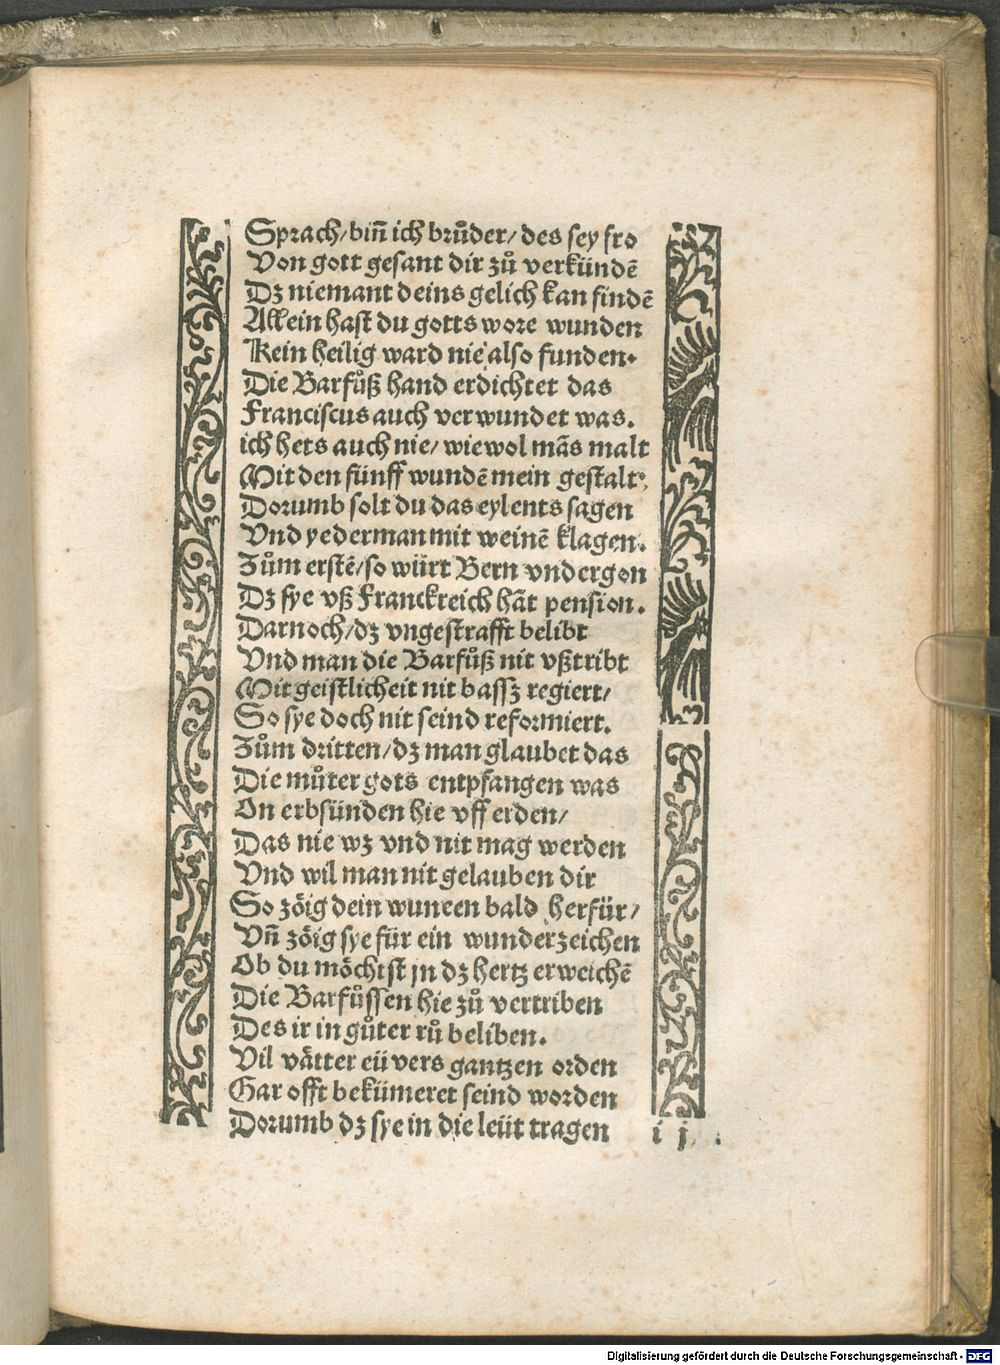 Sprach/ biñ ich brůder/ des sey fro
Von gott gesant dir zů verkündē
Dz niemant deins gelich kan findē
Allein hast du gotts wore wunden
Kein heilig ward nie also funden.
Die Barfůß hand erdichtet das
Franciscus auch verwundet was.
ich hets auch nie/ wiewol mās malt
Mit den fünff wundē mein gestalt,
Dorumb solt du das eylents sagen
Vnd yederman mit weinē klagen.
Zům erstē/ so würt Bern vndergon
Dz sye vß Franckreich hāt pension.
Darnoch/ dz vngestrafft belibt
Vnd man die Barfůß nit vßtribt
Mit geistlicheit nit bassz regiert/
So sye doch nit seind reformiert.
Zům dritten/ dz man glaubet das
Die můter gots entpfangen was
On erbsünden hie vff erden/
Das nie wz vnd nit mag werden
Vnd wil man nit gelauben dir
So zöig dein wuneen bald herfür/
Vñ zöig sye für ein wunderzeichen
Ob du möchtst jn dz hertz erweichē
Die Barfůssen hie zů vertriben
Des ir in gůter rů beliben.
Vil vätter eü vers gantzen orden
Gar offt bekümeret seind worden
Dorumb dz sye in die leüt tragen
i j
Digitalisierung gefördert durch die Deutsche Forschungsgemeinschaft - DFG